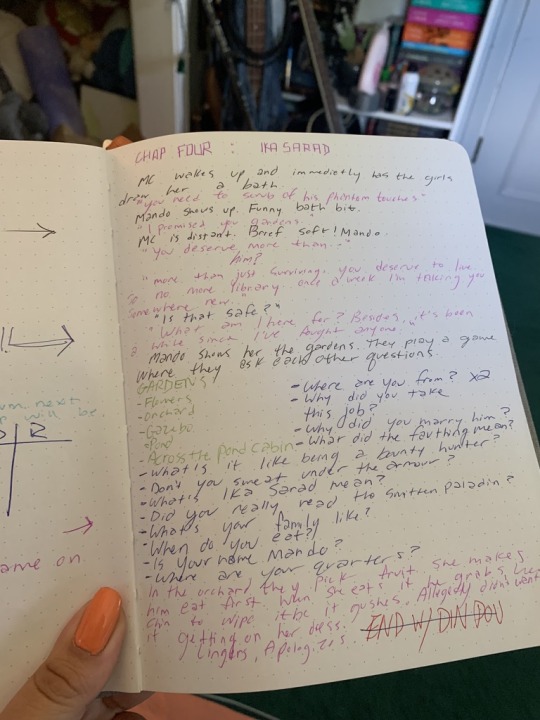 CHAP FOUR : IKA SARAD
MC wakes up and immedietly has the girls
draw her a bath.
"you need to scrub of his phantom touches"
Mando shows up. Funny bath bit.
"I promised you gardens."
MC is distant. Brief soft! Mando.
"You deserve more than..."
him?
"more than just surviving, you deserve to live
So no more library. once a week I'm taking you
somewhere new."
"Is that safe?"
"What am I here for? Besides, it's been
a while since I've fought anyone."
Mando shows her the gardens. They play a game
where they ask each other questions.
GARDENS
- Flowers
- orchard
- Gazebo
- Pond
- Across the pond cabin
- Where are you from? x2
- Why did you take
this job?
- Why did you marry him?
- What did the fay thing mean?
- What's it like being a bounty hunter?
- Don't you sweat under the armour?
- What's Ika Sarad mean?
- Did you really read the Smitten paladin?
- What's your family like?
- When do you eat?
- Is your name Mando?
- Where are your quarters?
In the orchard they pick fruit. She makes
him eat first. When she eats it he grabs her
chin to wipe it bc it gushes. Allegedly didn't want
it getting on her dress.
Lingers, Apologizes.
END W/ DIN DOU
um next
r will be.
R
ame on